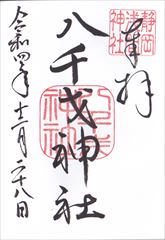 奉拝
静岡
浅間
神社
八千戈神社
令和四年十一月二十八日